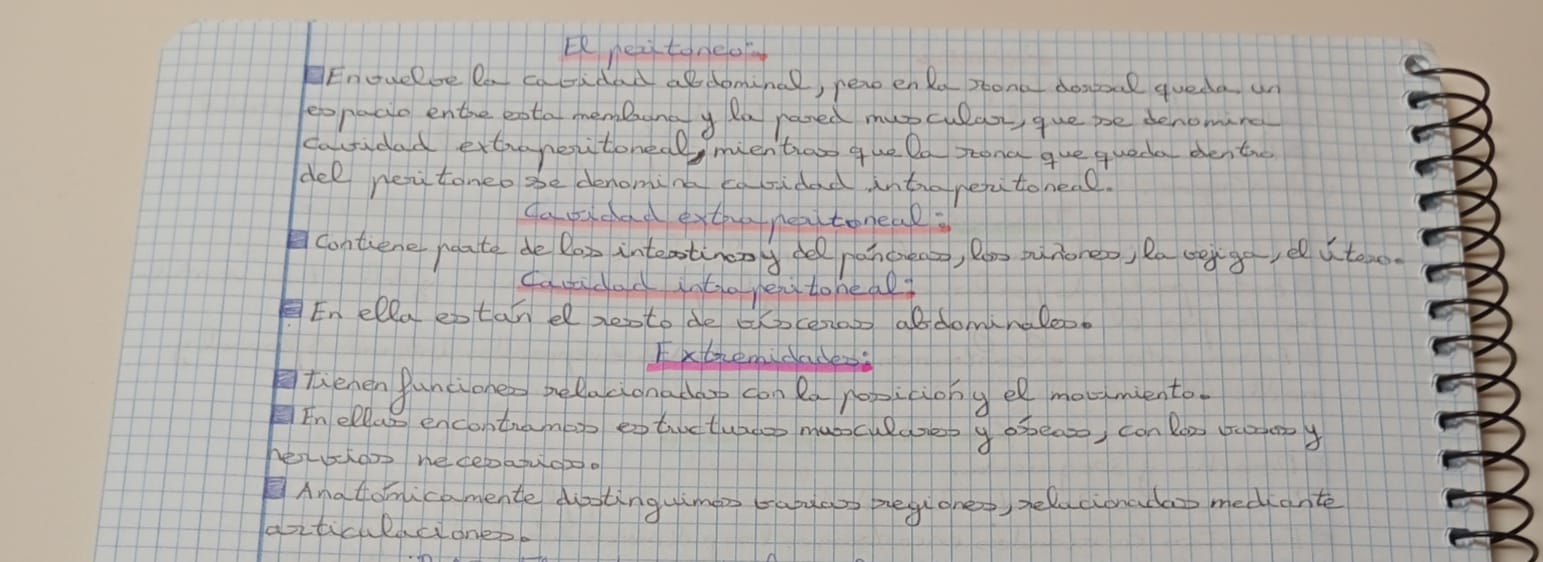 El peritoneo:
Envuelve la cavidad abdominal, pero en la zona dorsal queda un
espacio entre esta membrana y la pared muscular, que se denomina
cavidad extraperitoneal, mientras que la zona que queda dentro
del peritoneo se denomina cavidad intraperitoneal.
Cavidad extraperitoneal:
Contiene parte de los intestinos y del páncreas, los riñones, la vejiga, el útero.
Cavidad intraperitoneal:
En ella están el resto de vísceras abdominales.
Extremidades:
Tienen funciones relacionadas con la posición y el movimiento.
En ellas encontramos estructuras musculares y óseas, con los vasos y
nervios necesarios.
Anatómicamente distinguimos varias regiones, relacionadas mediante
articulaciones.